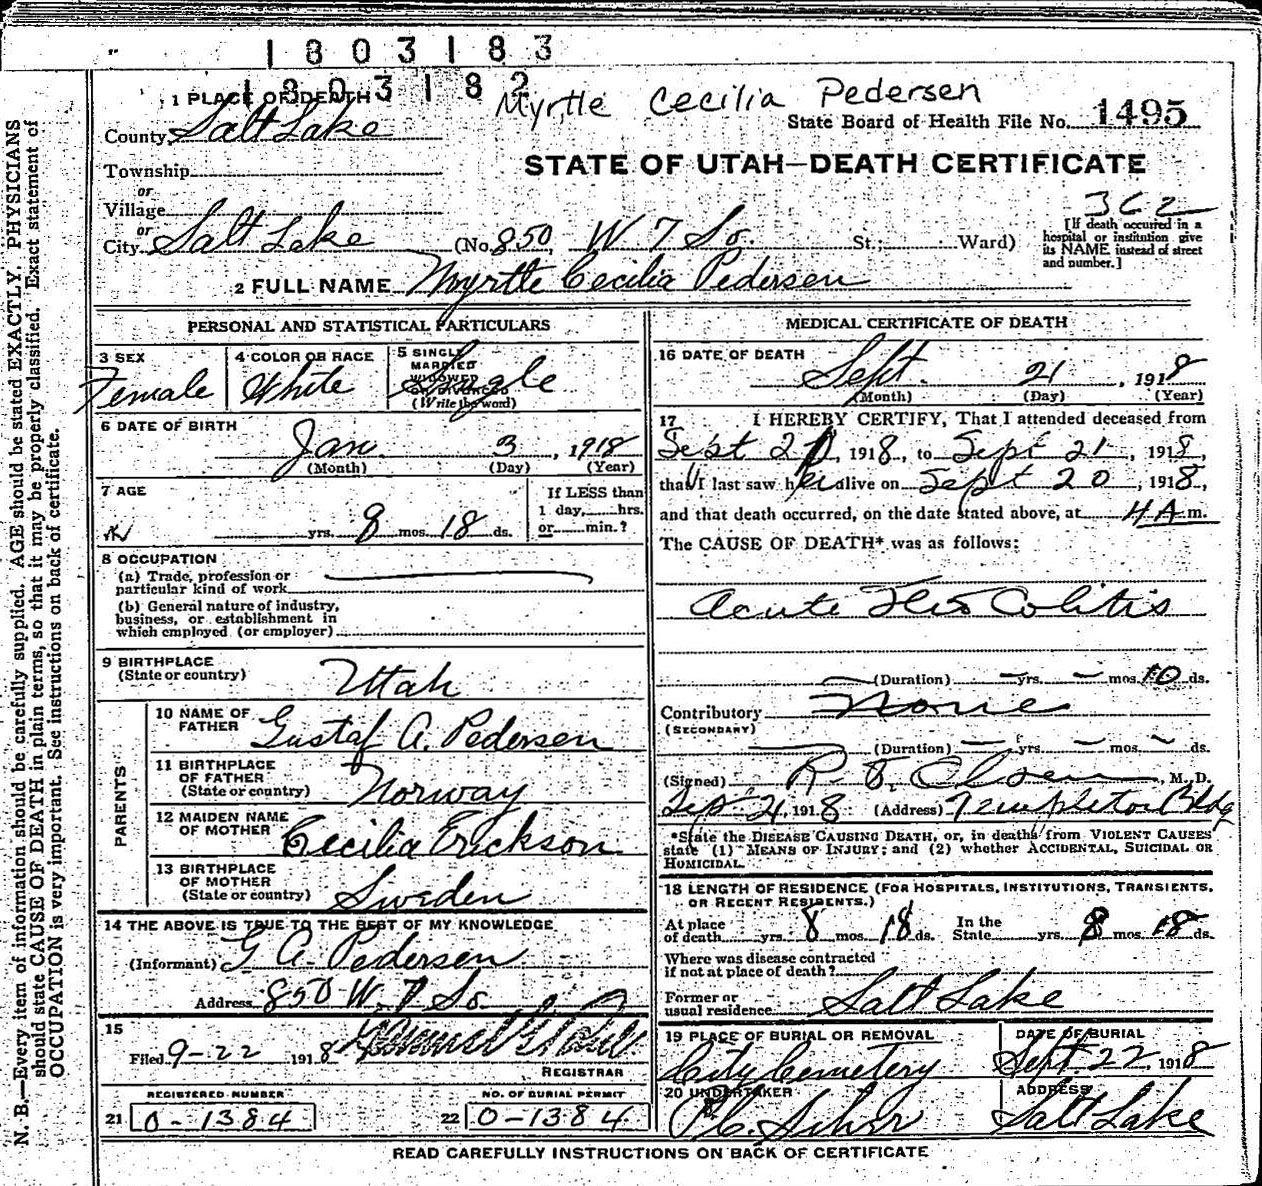 1803183
1803182
Myrtle Cecilia Pedersen
1 PLACE OF DEATH
County Salt Lake
State Board of Health File No. 1495
Township
STATE OF UTAH—DEATH CERTIFICATE
or
Village
or
City Salt Lake (No. 850 W 7 So. St.; Ward)
[If death occurred in a hospital or institution give its NAME instead of street and number.]
2 FULL NAME Myrtle Cecilia Pedersen
PERSONAL AND STATISTICAL PARTICULARS
3 SEX
Female
4 COLOR OR RACE
White
5 SINGLE
MARRIED
WIDOWED
OR DIVORCED
(Write the word)
Single
6 DATE OF BIRTH
Jan. 3, 1918
(Month) (Day) (Year)
7 AGE
yrs. 8 mos. 18 ds.
If LESS than
1 day, hrs.
or min.?
8 OCCUPATION
(a) Trade, profession or
particular kind of work
(b) General nature of industry,
business, or establishment in
which employed (or employer)
9 BIRTHPLACE
(State or country) Utah
PARENTS
10 NAME OF
FATHER Gustaf A. Pedersen
11 BIRTHPLACE
OF FATHER
(State or country) Norway
12 MAIDEN NAME
OF MOTHER Cecilia Erickson
13 BIRTHPLACE
OF MOTHER
(State or country) Sweden
14 THE ABOVE IS TRUE TO THE BEST OF MY KNOWLEDGE
(Informant) G. A. Pedersen
Address 850 W. 7 So.
15
Filed 9-22 1918
REGISTRAR
REGISTERED NUMBER
21 0-1384
NO. OF BURIAL PERMIT
22 0-1384
MEDICAL CERTIFICATE OF DEATH
16 DATE OF DEATH
Sept. 21, 1918
(Month) (Day) (Year)
17 I HEREBY CERTIFY, That I attended deceased from
1918, to Sept 21, 1918,
that I last saw her alive on Sept 20, 1918,
and that death occurred, on the date stated above, at 4 A m.
The CAUSE OF DEATH* was as follows:
Acute Ileo Colitis
(Duration) yrs. mos. 10 ds.
Contributory None
(SECONDARY)
(Duration) yrs. mos. ds.
(Signed) Olsen, M. D.
Sept 21, 1918 (Address) Templeton Bldg
*State the DISEASE CAUSING DEATH, or, in deaths from VIOLENT CAUSES
state (1) MEANS OF INJURY; and (2) whether ACCIDENTAL, SUICIDAL OR
HOMICIDAL.
18 LENGTH OF RESIDENCE (FOR HOSPITALS, INSTITUTIONS, TRANSIENTS,
OR RECENT RESIDENTS.)
At place of death yrs. 8 mos. 18 ds. In the State yrs. 8 mos. 18 ds.
Where was disease contracted
if not at place of death?
Former or
usual residence Salt Lake
19 PLACE OF BURIAL OR REMOVAL
City Cemetery
DATE OF BURIAL
Sept. 22, 1918
20 UNDERTAKER
ADDRESS
Salt Lake
READ CAREFULLY INSTRUCTIONS ON BACK OF CERTIFICATE
N. B.—Every item of information should be carefully supplied. AGE should be stated EXACTLY. PHYSICIANS
should state CAUSE OF DEATH in plain terms, so that it may be properly classified. Exact statement of
OCCUPATION is very important. See instructions on back of certificate.